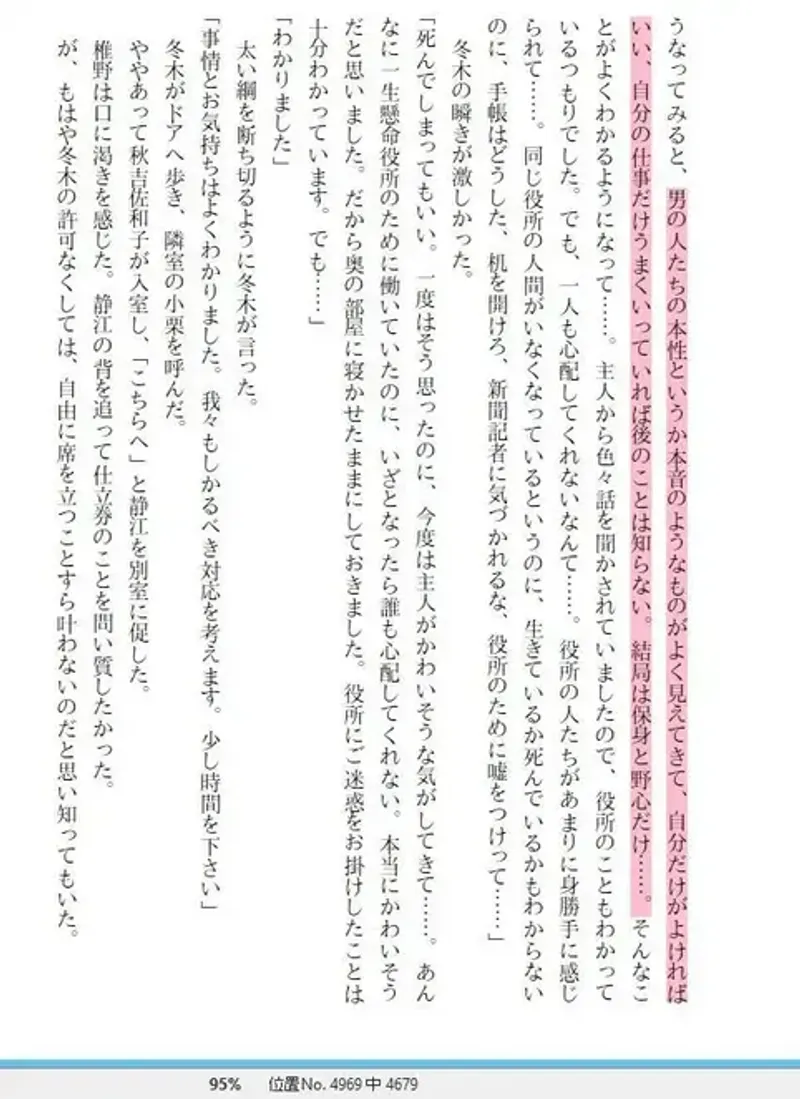 うなってみると、男の人たちの本性というか本音のようなものがよく見えてきて、自分だけがよければ
いい、自分の仕事だけうまくいっていれば後のことは知らない。結局は保身と野心だけ……。そんなこ
とがよくわかるようになって……。主人から色々話を聞かされていましたので、役所のこともわかって
いるつもりでした。でも、一人も心配してくれないなんて……。役所の人たちがあまりに身勝手に感じ
られて……。同じ役所の人間がいなくなっているというのに、生きているか死んでいるかもわからない
のに、手帳はどうした、机を開けろ、新聞記者に気づかれるな、役所のために嘘をつけって……」
冬木の瞬きが激しかった。
「死んでしまってもいい。一度はそう思ったのに、今度は主人がかわいそうな気がしてきて……。あん
なに一生懸命役所のために働いていたのに、いざとなったら誰も心配してくれない。本当にかわいそう
だと思いました。だから奥の部屋に寝かせたままにしておきました。役所にご迷惑をお掛けしたことは
十分わかっています。でも……」
「わかりました」
太い綱を断ち切るように冬木が言った。
「事情とお気持ちはよくわかりました。我々もしかるべき対応を考えます。少し時間を下さい」
冬木がドアへ歩き、隣室の小栗を呼んだ。
ややあって秋吉佐和子が入室し、「こちらへ」と静江を別室に促した。
椎野は口に渇きを感じた。静江の背を追って仕立券のことを問い質したかった。
が、もはや冬木の許可なくしては、自由に席を立つことすら叶わないのだと思い知ってもいた。
95% 位置No. 4969 中 4679